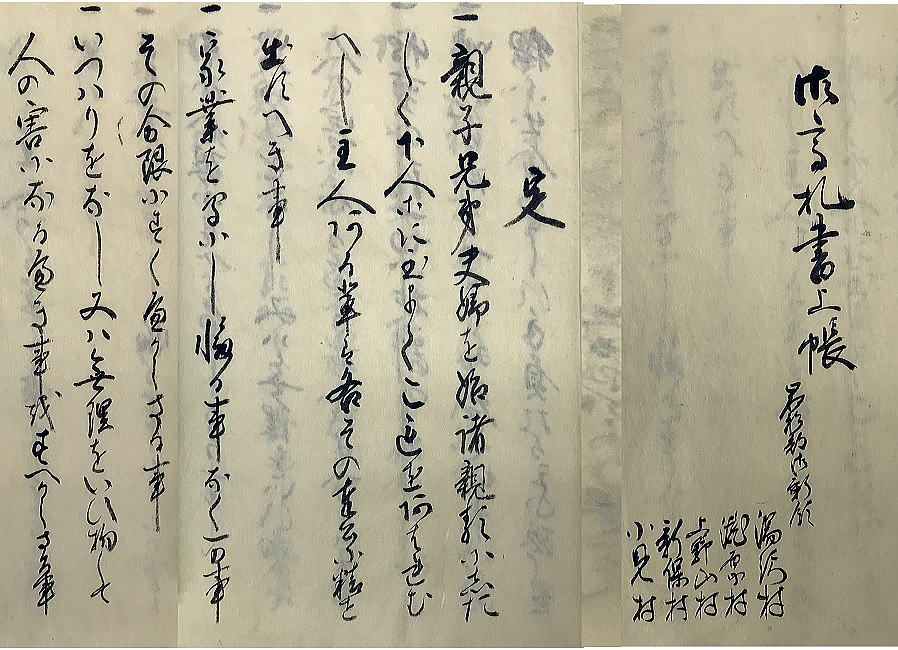 御高札書上帳
御新領
湯沢村
滝原村
上野山村
新保村
小見村
定
一親子兄弟夫婦を始諸親類にした
しく下人等に至まてこれをあはれむ
へし主人ある輩は各その奉公に精を
出すへき事
一家業を専にし惰る事なく万事
その分限にすくへからさる事
一いつはりをなし又は無理をいひ惣して
人の害になるへき事をすへからさる事